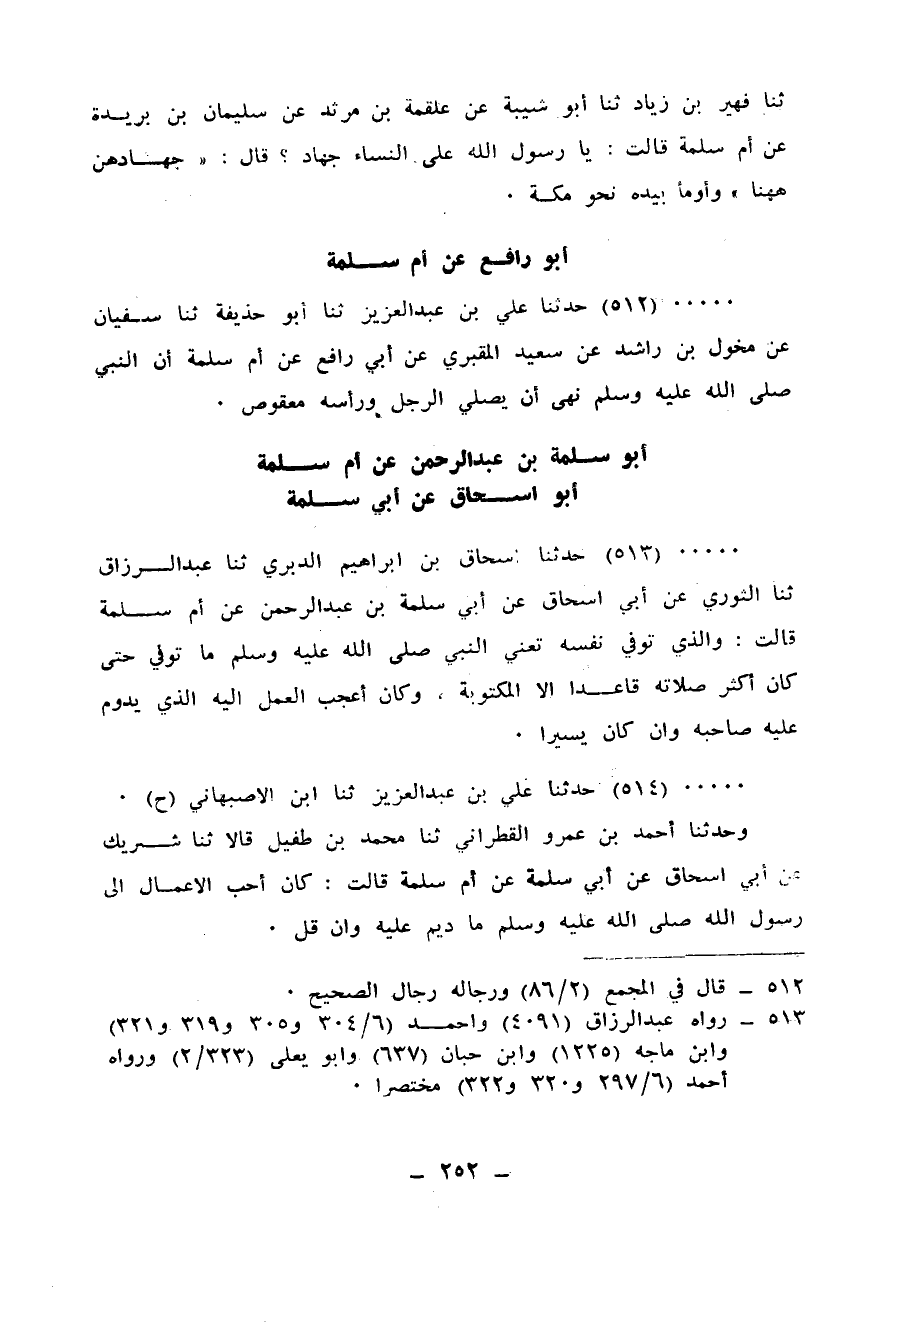 ثنا فهير بن زياد ثنا أبو شيبة عن علقمة بن مرثد عن سليمان بن بريـدة
عن أم سلمة قالت : يا رسول الله على النساء جهاد ؟ قال : « جهــادهن
ههنا » وأومأ بيده نحو مكـة .
أبو رافـع عن أم ســلمة
..... (٥١٢) حدثنا علي بن عبدالعزيز ثنا أبو حذيفة ثنا سـفيان
عن مخول بن راشد عن سعيد المقبري عن أبي رافع عن أم سلمة أن النبي
صلى الله عليه وسلم نهى أن يصلي الرجل ورأسه معقوص .
أبو سـلمة بن عبدالرحمن عن أم ســلمة
أبو اسـحاق عن أبي ســلمة
..... (٥١٣) حدثنا اسحاق بن ابراهيم الدبري ثنا عبدالــرزاق
ثنا الثوري عن أبي اسحاق عن أبي سلمة بن عبدالرحمن عن أم ســلمة
قالت : والذي توفي نفسه تعني النبي صلى الله عليه وسلم ما توفي حتى
كان أكثر صلاته قاعــدا الا المكتوبة ، وكان أعجب العمل اليه الذي يدوم
عليه صاحبه وان كان يسيرا .
..... (٥١٤) حدثنا علي بن عبدالعزيز ثنا ابن الاصبهاني (ح) .
وحدثنا أحمد بن عمرو القطراني ثنا محمد بن طفيل قالا ثنا شــريك
عن أبي اسحاق عن أبي سلمة عن أم سلمة قالت : كان أحب الاعمــال الى
رسول الله صلى الله عليه وسلم ما ديم عليه وان قل .
٥١٢ ـ قال في المجمع (٨٦/٢) ورجاله رجال الصحيح .
٥١٣ ـ رواه عبدالرزاق (٤٠٩١) واحمــد (٣٠٤/٦ و٣٠٥ و٣١٩ و٣٢١)
وابن ماجه (١٢٢٥) وابن حبان (٦٣٧) وابو يعلى (٢/٣٢٣) ورواه
أحمد (٢٩٧/٦ و٣٢٠ و٣٢٢) مختصرا .
ـ ٢٥٢ ـ